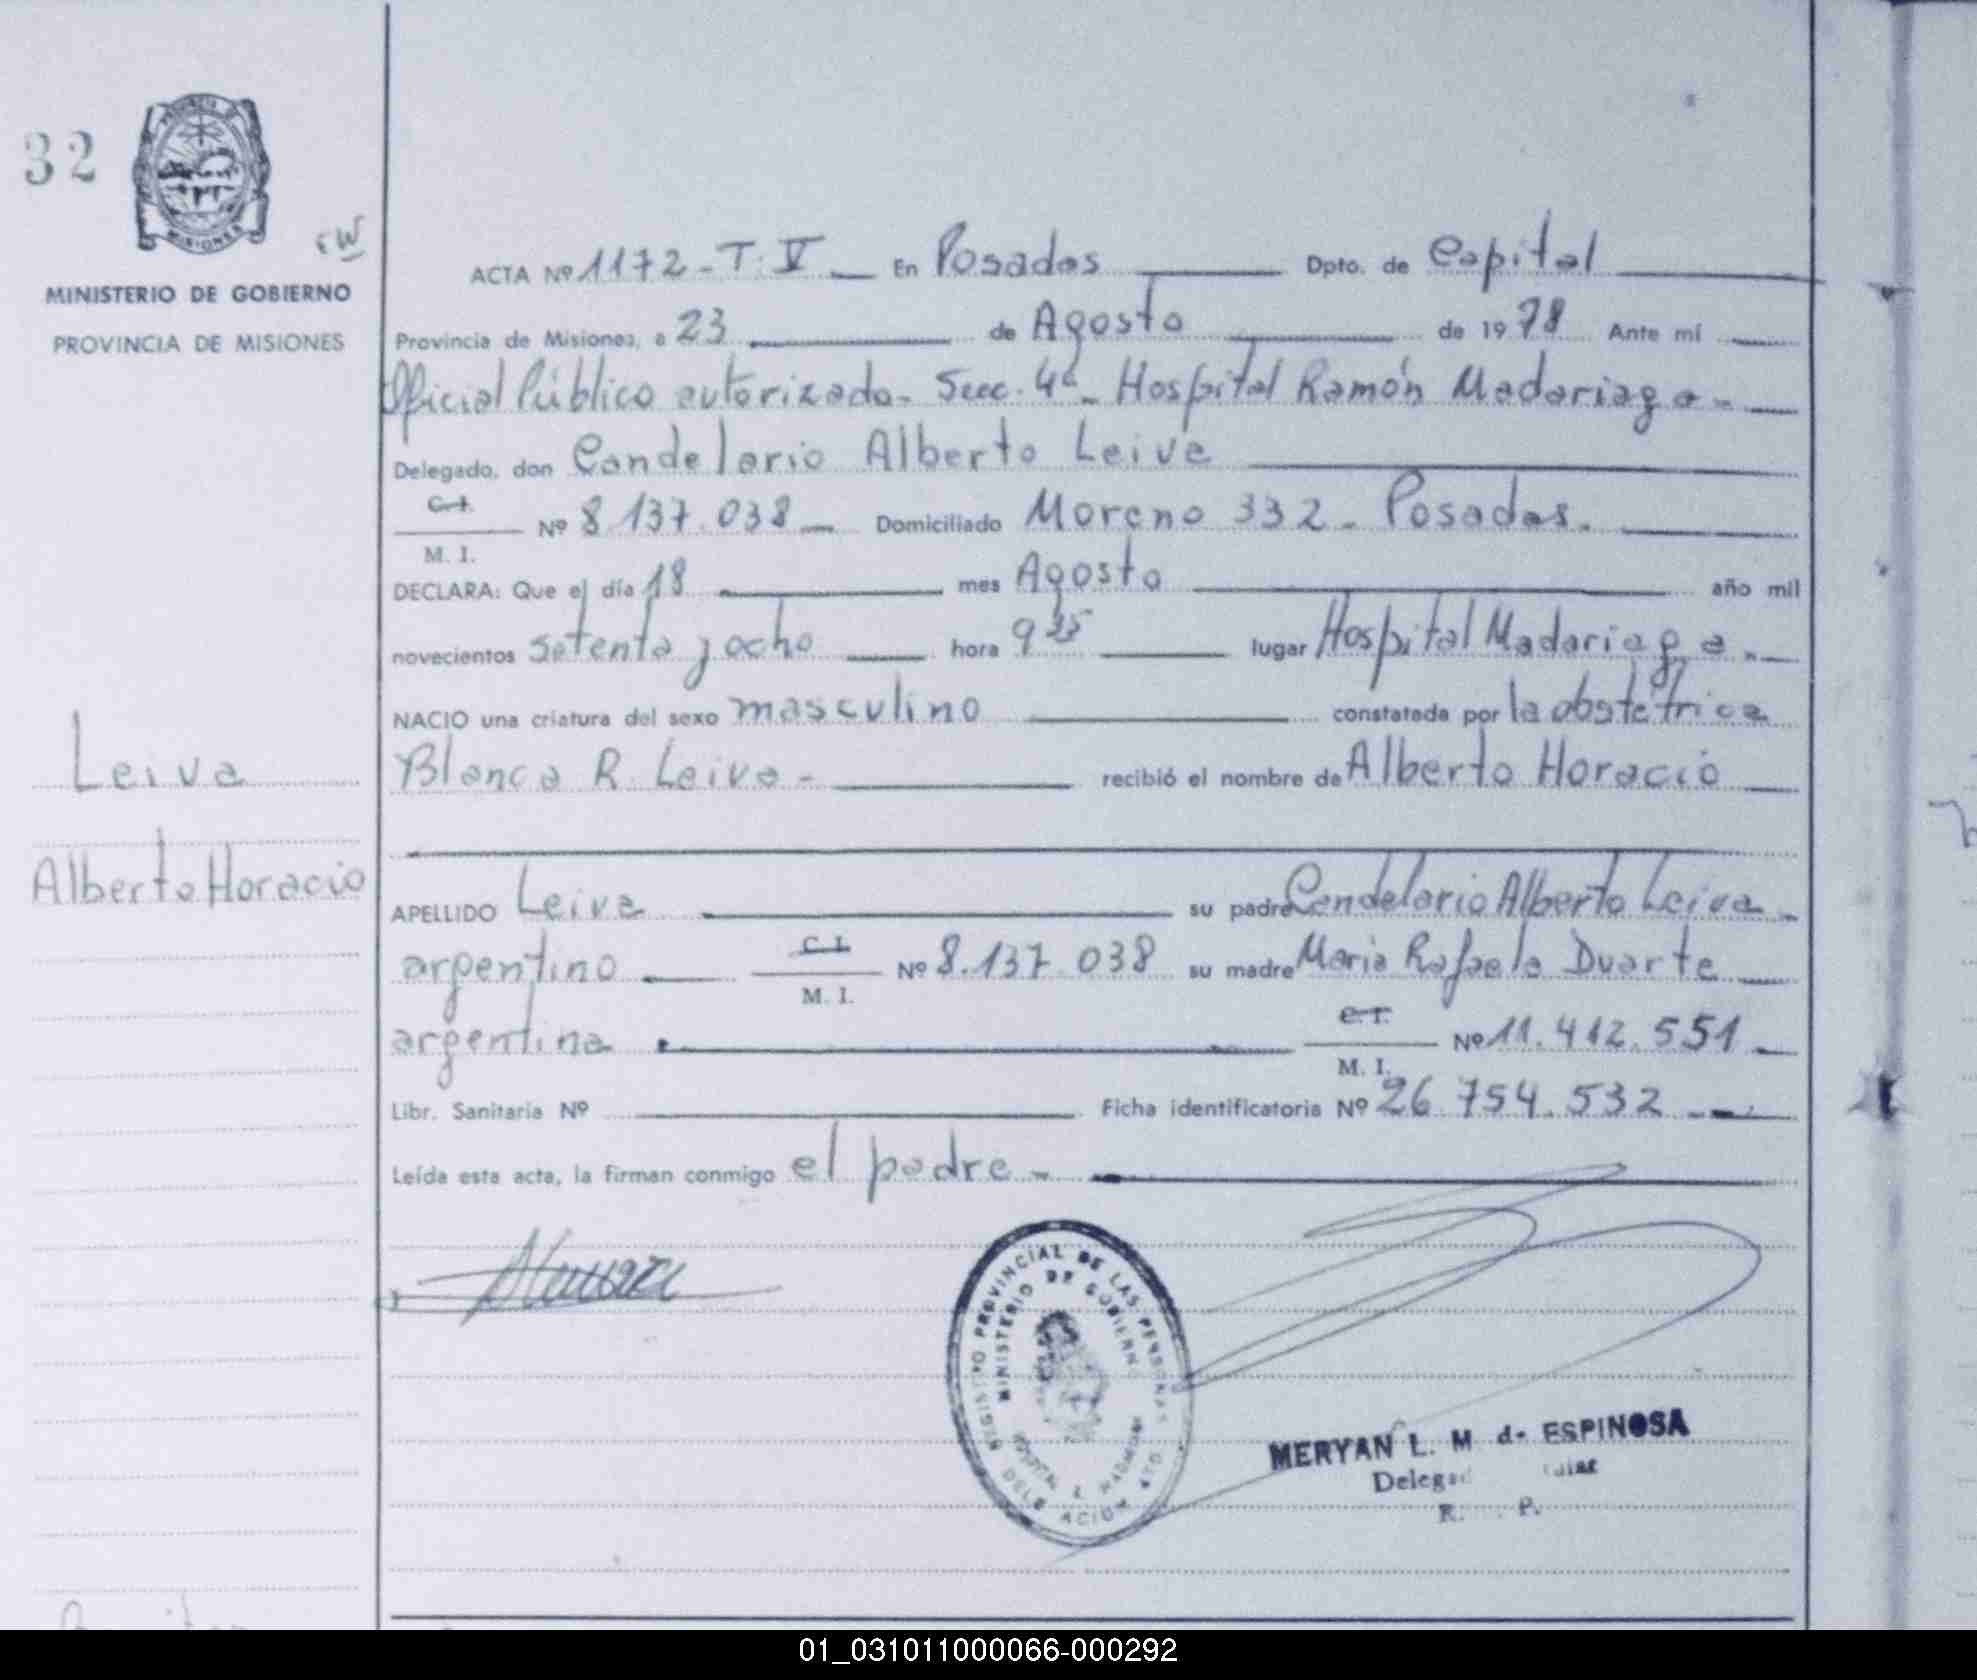 32
MINISTERIO DE GOBIERNO
PROVINCIA DE MISIONES
ACTA Nº 1172 - T. V En Posadas Dpto. de Capital
Provincia de Misiones, a 23 de Agosto de 1978 Ante mí
Oficial Público autorizado - Secc. 4ª - Hospital Ramón Madariaga -
Delegado, don Candelario Alberto Leiva
C.I.
Nº 8.137.038 Domiciliado Moreno 332 - Posadas.
M. I.
DECLARA: Que el día 18 mes Agosto año mil
novecientos setenta y ocho hora 9 35 lugar Hospital Madariaga.
NACIO una criatura del sexo masculino constatada por la obstétrica
Blanca R. Leiva - recibió el nombre de Alberto Horacio
Leiva
Alberto Horacio
APELLIDO Leiva su padre Candelario Alberto Leiva
argentino C.I. Nº 8.137.038 su madre Maria Rafaela Duarte
M. I.
argentina C.I. Nº 11.412.551
M. I.
Libr. Sanitaria Nº Ficha identificatoria Nº 26.754.532
Leída esta acta, la firman conmigo el padre -
REGISTRO PROVINCIAL DE LAS PERSONAS
MINISTERIO DE GOBIERNO
HOSPITAL R. MADARIAGA
DELEGACION
MERYAN L. M de ESPINOSA
01_031011000066-000292